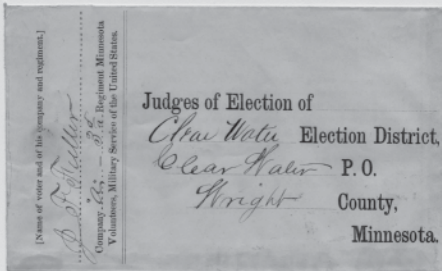 [Name of voter and of his company and regiment.]
J. F. Fuller
Company Regiment Minnesota
Volunteers, Military Service of the United States.
Judges of Election of
Clear Water Election District,
Clear Water P. O.
Wright County,
Minnesota.